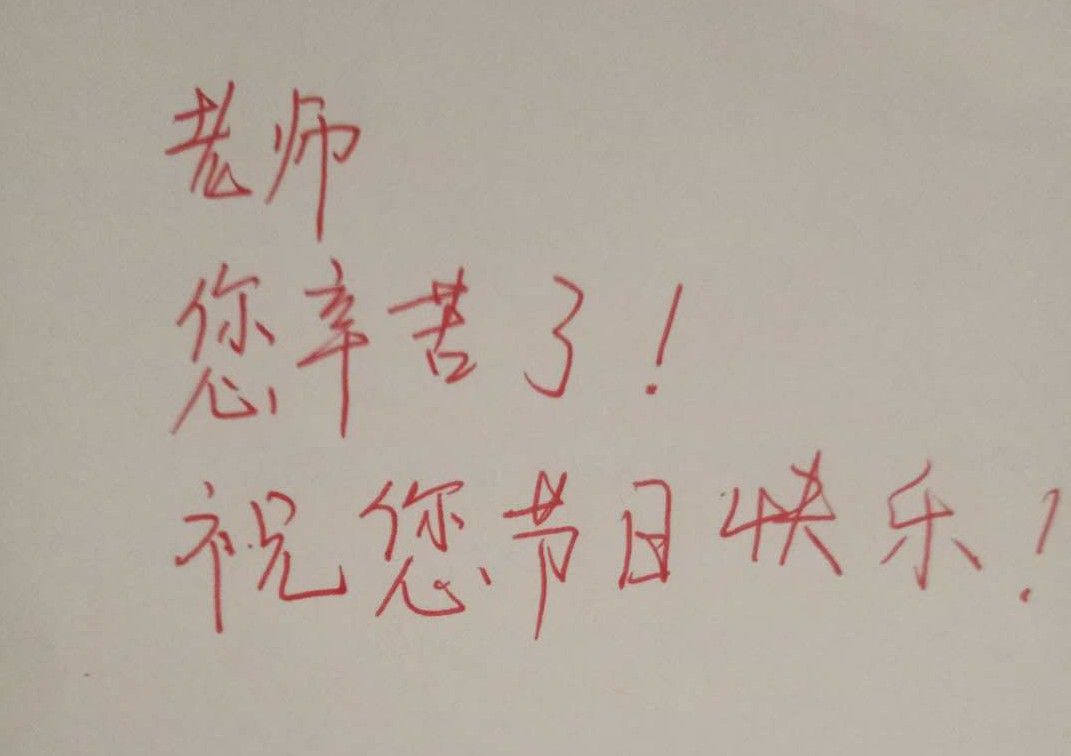 老师
您辛苦了!
祝您节日快乐!